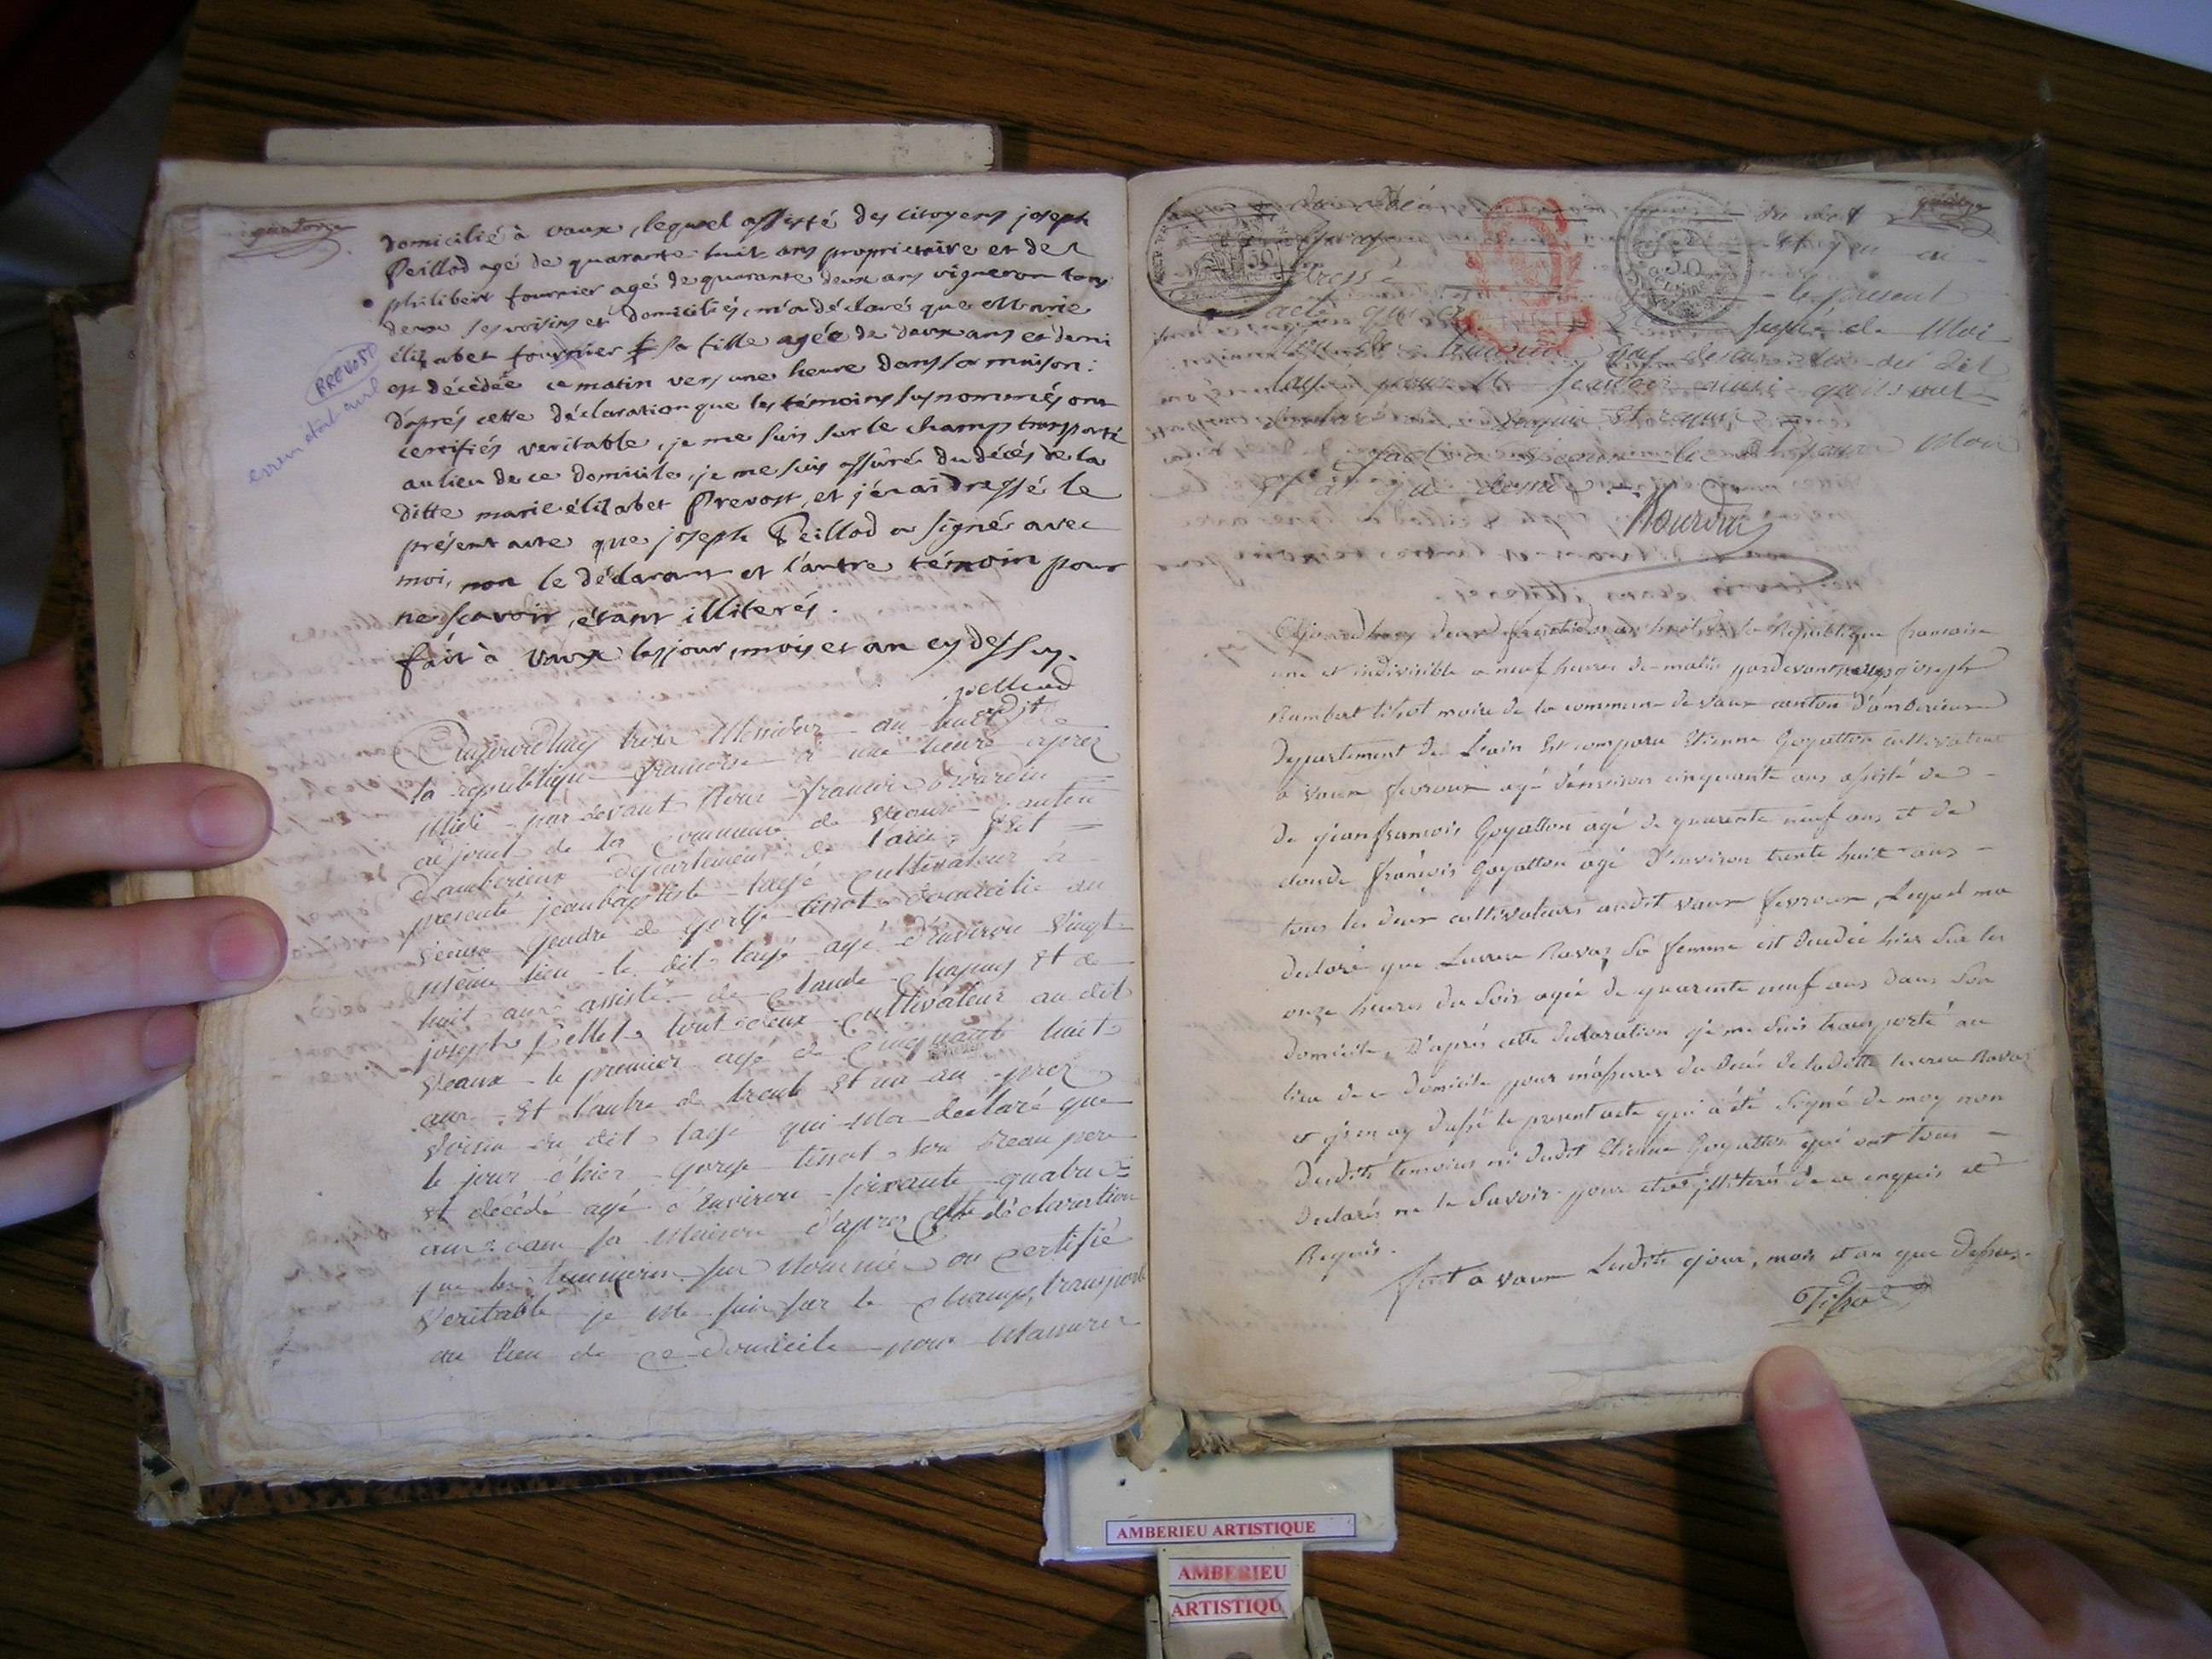 quatorze
domicilié à vaux, lequel assisté des citoyens joseph
Peillod agé de quarante huit ans propriétaire et de
philibert fournier agé de quarante deux ans vigneron tous
deux ses voisins et domiciliés, m'a déclaré que Marie
élizabet fournier sa fille agée de deux ans et demi
est décédée ce matin vers une heure dans sa maison:
d'après cette déclaration que les témoins susnommés ont
certifiés veritable, je me suis sur le champ transporté
au lieu de ce domicile, je me suis assûré du décés de la
ditte marie élizabet Prevost, et j'én ai dressé le
présent acte que joseph Peillod a signé avec
moi, non le déclarant et l'autre témoin pour
ne scavoir, étant illiterés.
fait à vaux les jour, mois et an cy dessus.
PREVOST
erreur état civil
Aujourdhuy treize Messidor an huit de
la republique francoise à une heure aprez
Midi par devant Nous francois Bourdin
adjoint de la commune de Veaux canton
d'amberieux departement de l'ain, S'est
presenté jeanbaptiste layé cultivateur à
Veaux gendre de george tissot domicilie au
meme lieu le dit layé agé d'environ Vingt
huit ans assisté de Claude Chapuy Et de
joseph pellet tout deux Cultivateur au dit
Veaux le premier agé de Cinquante huit
ans Et l'autre de trente Et un an prez
Voisin du dit layé qui Ma declaré que
le jour d'hier george tissot son beau pere
Et décédé agé d'Environ soixante quatre
ans dans sa Maison d'aprez Cette déclaration
que les temoins sus Nommés on Certifié
Veritable je Me suis sur le Champ, transporté
au lieu de Ce domicile pour Massurer
du Décé
dressé
le present
acte qui
signé de Moi
layé pour ne scavoir ainsi quils ont
Enquis Et requi
fait à Veaux le jour Mois
Et an que dessus
Bourdin
Ajourdhuy deux fructidor an huit de la République francaise
une et indivisible a neuf heures du matin pardevant nous joseph
Rambert tissot maire de la commune de Vaux canton d'amberieux
Departement de Lain Est comparu Etienne Goyatton cultivateur
à Vaux fevroux agé d'environ cinquante ans assisté de
De jeanfrancois Goyatton agé de quarente neuf ans et de
claude françois Goyatton agé d'environ trente huit ans
tous les deux cultivateurs audit Vaux fevroux, Lequel ma
declaré que Lucresse Ravaz Sa femme est decedée hier sur les
onze heures du Soir agée de quarente neuf ans dans Son
domicile, D'après cette declaration je me suis transporté au
lieu de ce Domicile pour m'assurer du Decé de laditte lucresse Ravaz
et j'en ay dressé le present acte qui a été Signé de moy non
Desdits temoins ni dudit Etienne Goyatton qui ont tous
Declarés ne le Savoir pour etre illiterés de ce enquis et
Requis.
fait a vaux Lesdits jour, mois et an que Dessus.
Tissot
AMBERIEU ARTISTIQUE
AMBERIEU
ARTISTIQU